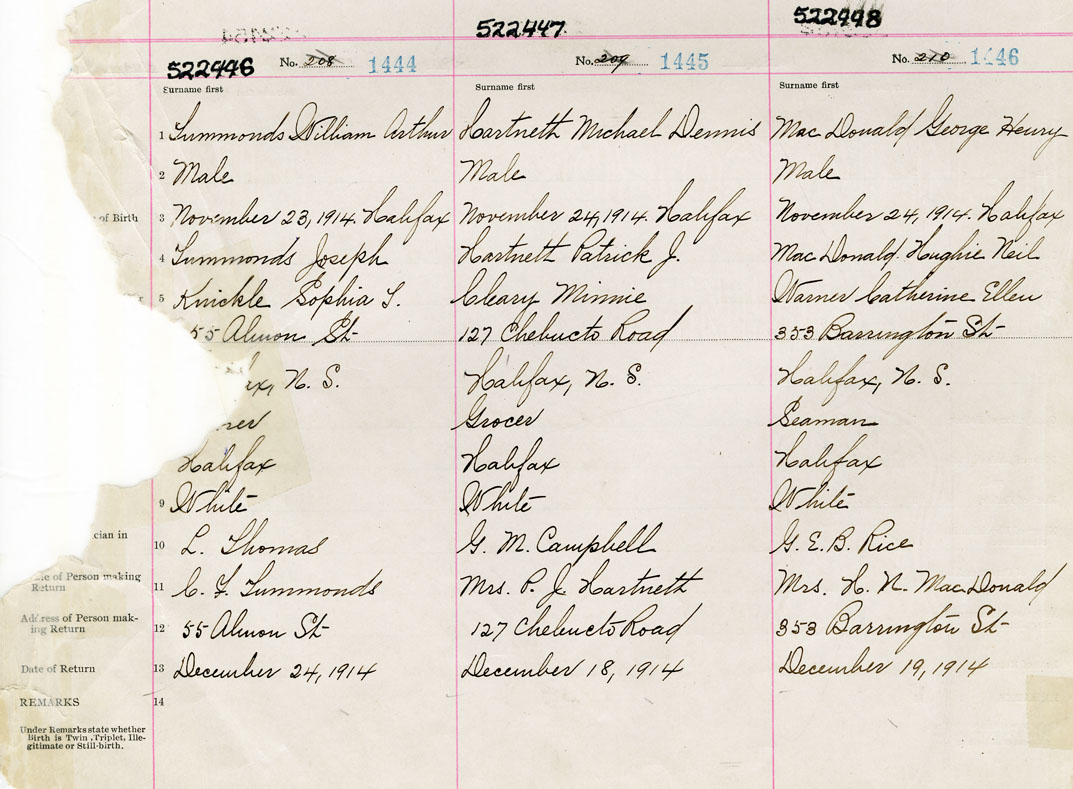 522446 522447 522448
No. 208 1444 No. 209 1445 No. 210 1446
Surname first Surname first Surname first
1 Summonds William Arthur Hartnett Michael Dennis Mac Donald George Henry
2 Male Male Male
of Birth 3 November 23, 1914. Halifax November 24, 1914. Halifax November 24, 1914. Halifax
4 Summonds Joseph Hartnett Patrick J. Mac Donald Hughie Neil
5 Knickle Sophia Cleary Minnie Warner Catherine Ellen
55 Almon St 127 Chebucto Road 353 Barrington St
ax, N. S. Halifax, N. S. Halifax, N. S.
Grocer Seaman
Halifax Halifax Halifax
9 White White White
cian in 10 L. Thomas G. M. Campbell G. E. B. Rice
of Person making
Return 11 C. F. Summonds Mrs. P. J. Hartnett Mrs. H. N. Mac Donald
Address of Person mak-
ing Return 12 55 Almon St 127 Chebucto Road 353 Barrington St
Date of Return 13 December 24, 1914 December 18, 1914 December 19, 1914
REMARKS 14
Under Remarks state whether
Birth is Twin, Triplet, Ille-
gitimate or Still-birth.